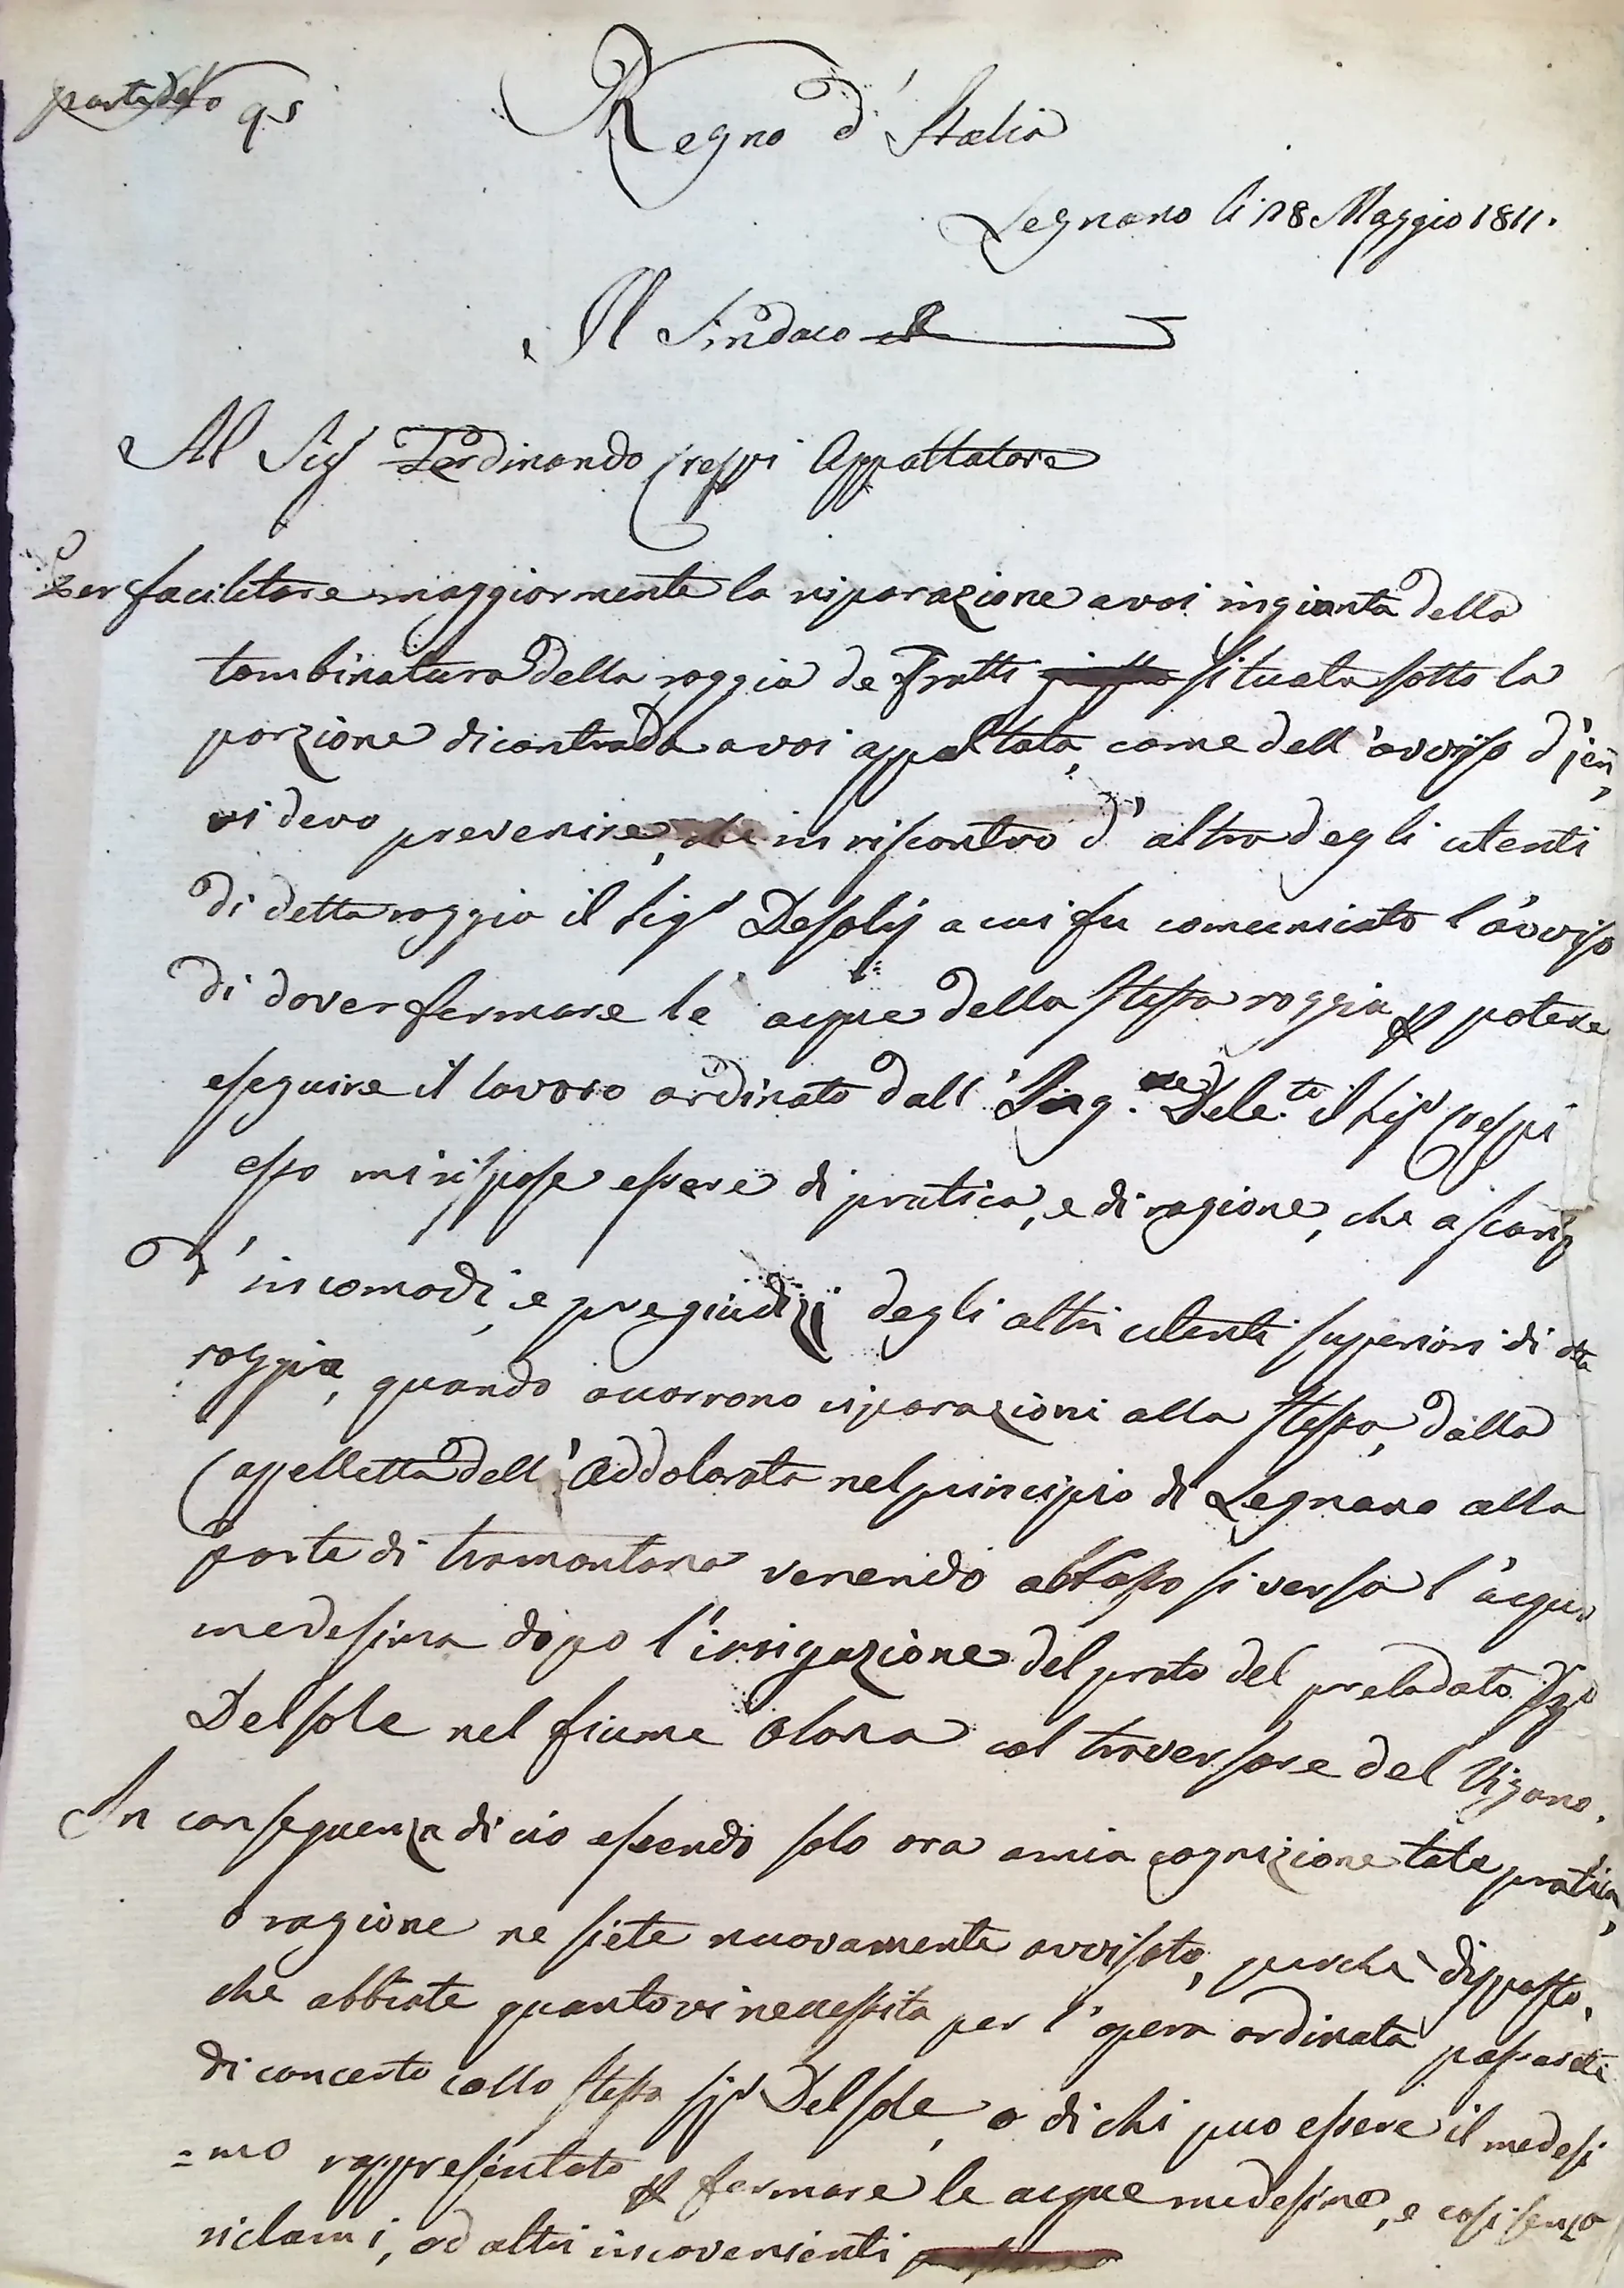 Regno d'Italia
Legnano li 18 Maggio 1811.
Il Sindaco
Al Sigr Ferdinando Creppi Appaltatore
Per facilitare maggiormente la riparazione a voi ingionta della
tombinatura della roggia de Fratti situata sotto la
porzione di contrada a voi appaltata, come dell'avviso d'jeri,
vi devo prevenire, che in riscontro d'altro degli utenti
di detta roggia il Sigr Desolij a cui fu comunicato l'avviso
di dover fermare le acque della stessa roggia potere
eseguire il lavoro ordinato dall' Ing.re Dele.to il Sigr Crespi
esso mi rispose essere di pratica, e di ragione, che a scanso
d'incomodi, e pregiudizj degli altri utenti superiori di dta
roggia, quando occorrono riparazioni alla stessa, dalla
Cappelletta dell'Addolorata nel principio di Legnano alla
parte di tramontana venendo abbasso si versa l'acqua
medesima dopo l'irrigazione del prato del prelodato Sigr
Delsole nel fiume Olona al traversare del Vigano.
In conseguenza di cio essendo solo ora a mia cognizione tale pratica,
o ragione ne siete nuovamente avvisato, perchè disposto,
che abbiate quanto vi necessita per l'opera ordinata passiate
di concerto collo stesso Sigr Delsole, o di chi puo essere il medesi
=mo rappresentato fermare le acque medesime, e cosi senza
riclami, od altri incovenienti